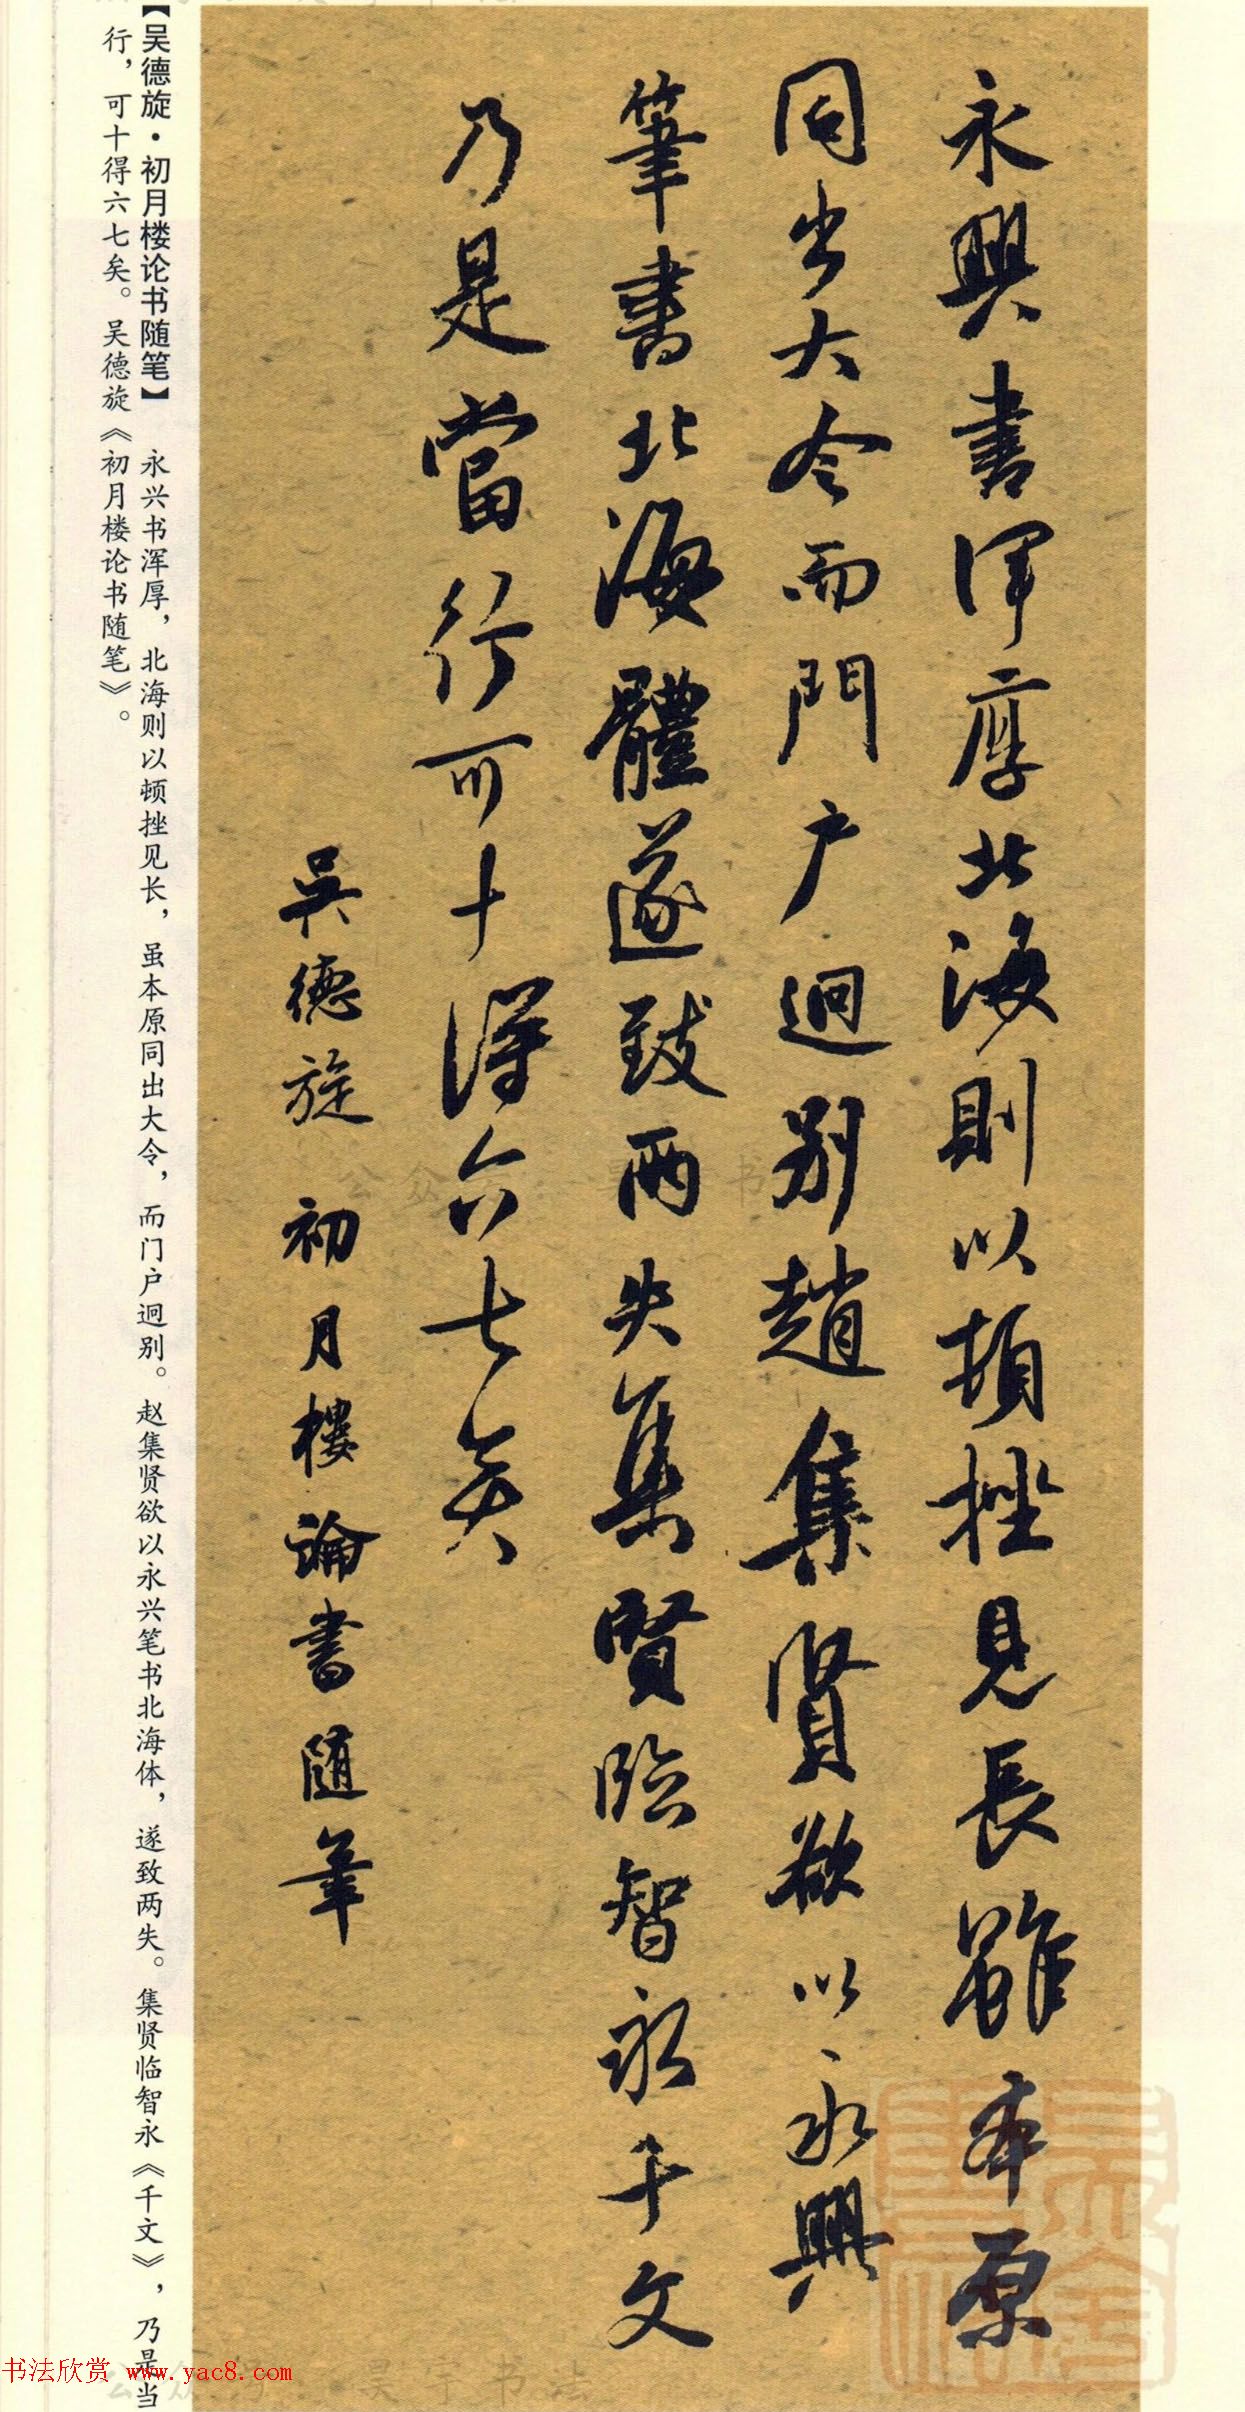 永興書渾厚北海則以頓挫見長雖本原
同出大令而門户迥别趙集賢欲以永興
筆書北海體遂致兩失集賢臨智永千文
乃是當行可十得六七矣
吳德旋 初月樓論書随筆
【吴德旋·初月楼论书随笔】 永兴书浑厚，北海则以顿挫见长，虽本原同出大令，而门户迥别。赵集贤欲以永兴笔书北海体，遂致两失。集贤临智永《千文》，乃是当
行，可十得六七矣。吴德旋《初月楼论书随笔》。
书法欣赏 www.yac8.com